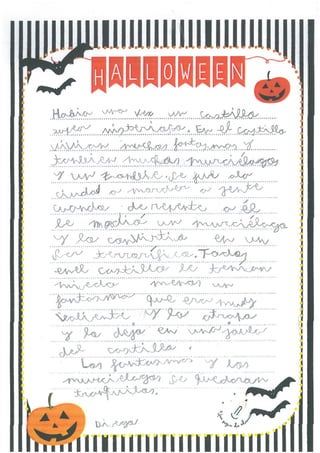 HALLOWEEN
Habia una vez un castillo
super misterioso. En el castillo
vivian muchos fantasmas y
tanbien muchos murciélagos
y un zombie. Se fue ala
ciudad a morder a jente
cuando de repente a él
le mordió un murciélago
y lo convirtio en un
ser terrorifico. Todos
enel castillo le tenian
miedo menos un
fantasma que era muy
valiente y lo atrapa
y lo deja en una jaula
del castillo.
Los fantasmas y los
murciélagos se quedaron
tranquilos.